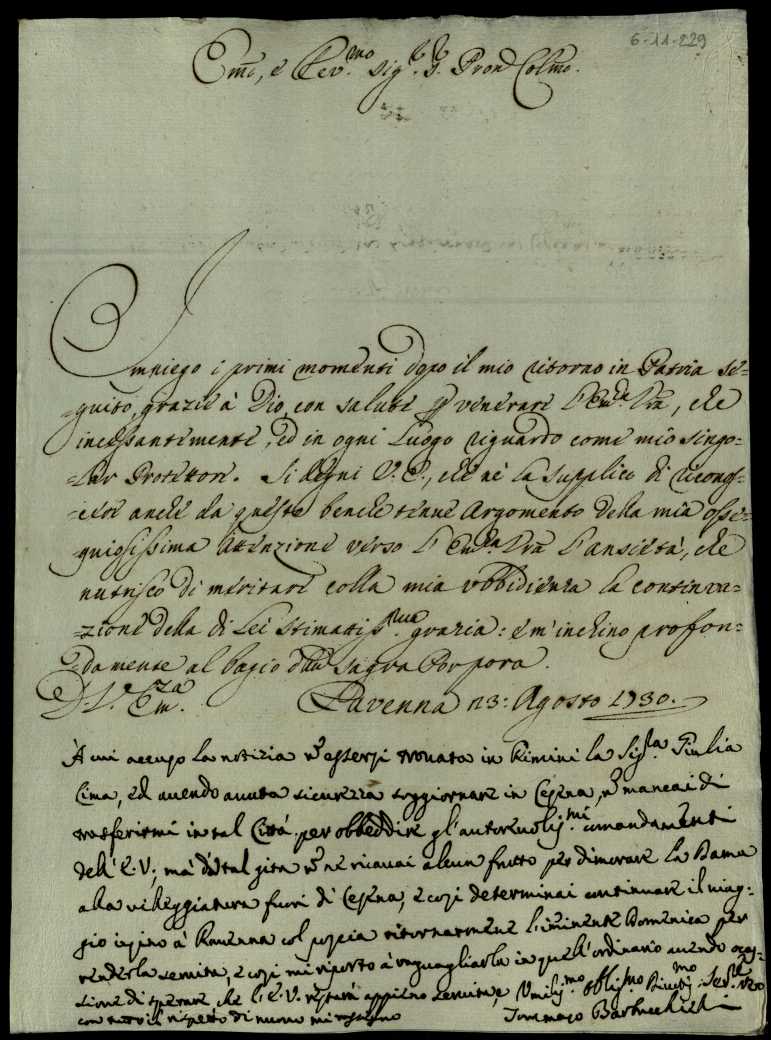 6-11-229
Em̃o, e Rev.mo Sig.r S.r Pron̄ Colmo.
Impiego i primi momenti dopo il mio ritorno in Patria se=
=guito, grazie à Dio, con salute p venerare l'Em.za Vra, che
incessantemente, ed in ogni Luogo riguardo come mio singo=
=lar Protettore. Si degni V. E., che nè la supplico di riconos=
=cere anche da queste benche tenue Argomento della mia osse=
quiosissima attenzione verso l'Em.za Vra l'ansietà, che
nutrisco di meritare colla mia vbbidienza la continua=
=zione della di Lei stimatiss.ma grazia: e m'inchino profon=
=damente al bagio dlla Sagra Porpora.
D. V. Em.za Ravenna 23: Agosto 1730.
À cui accuso la notizia ñ essersi trovata in Rimini la Sig.ra Giulia
Cima, ed avendo avuta sicurezza soggiornare in Cesena, ñ mancai di
trasferirmi in tal Città per obbeddire gl'autorevoliss.mi comandamenti
dell'E.V; mà da tal gita ñ ne ricavai alcun frutto per dimorare la Dama
alla villeggiatura fuori di Cesena, e così determinai continuare il viag=
gio insino à Ravenna col poscia ritornarmene l'iminente Domenica per
renderla servita, e così mi riporto à raguagliarla in quell'ordinario avendo occas=
sione di sperare che l'E.V. resterà appieno servita, e Umiliss.mo Obblig.mo Divotiss.mo Ser.re vero
con tutto il rispetto di nuovo mi rassegno Tommaso Barbucchielli